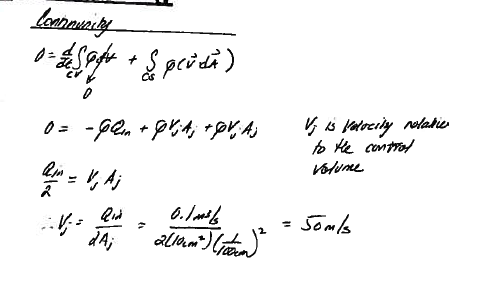 Continuity
0 = d/dt ∫cv ρdV + ∫cs ρ(v⃗ dA⃗)
0
0 = -ρQin + ρVjAj + ρVjAj
Vj is velocity relative
to the control
volume
Qin/2 = VjAj
∴ Vj = Qin/2Aj = 0.1m³/s / 2(10cm²)(1/100cm)² = 50m/s